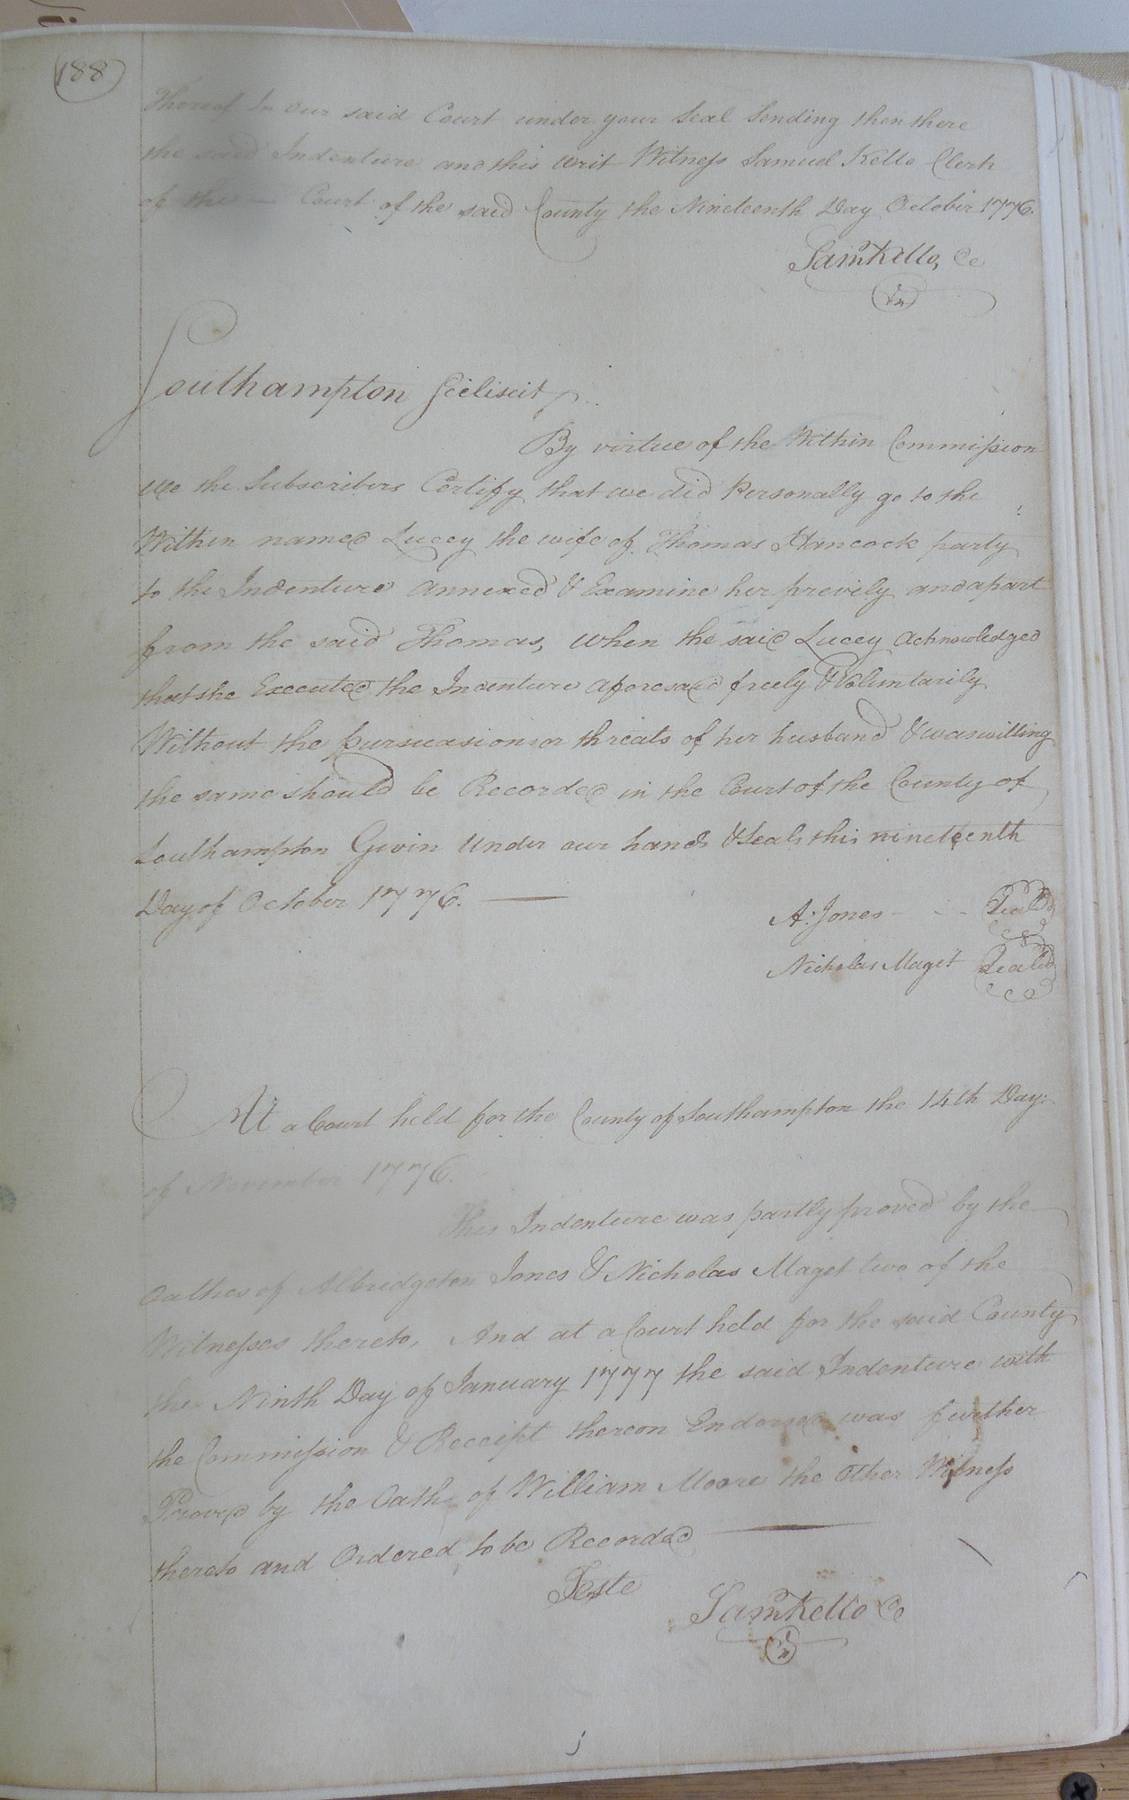 188
Thereof In our said Court under your Seal Sending then there
the said Indenture and this Writ Witness Samuel Kello Clerk
of the — Court of the said County the Nineteenth Day October 1776.
Sam. Kello, Cc
Southampton Scilicit
By virtue of the Within Commission
We the Subscribers Certify that we did Personally go to the
Within named Lucey the wife of Thomas Hancock party
to the Indenture Annexed & Examine her previly and apart
from the said Thomas, When the said Lucey Acknowledged
that she Executed the Indenture aforesaid freely & Voluntarily
Without the pursuasion or threats of her husband & was willing
the same should be Recorded in the Court of the County of
Southampton Givin Under our hands & Seals this nineteenth
Day of October 1776. —
A. Jones - - - Seal'd
Nicholas Maget Seal'd
At a Court held for the County of Southampton the 14th Day
of November 1776.
This Indenture was partly proved by the
Oathes of Albridgeton Jones & Nicholas Maget two of the
Witnesses thereto, And at a Court held for the said County
the Ninth Day of January 1777 the said Indenture with
the Commission & Receipt thereon Endorsed was further
Proved by the Oath of William Moore the Other Witness
thereto and Ordered to be Recorded —
Teste
Sam. Kello Cc